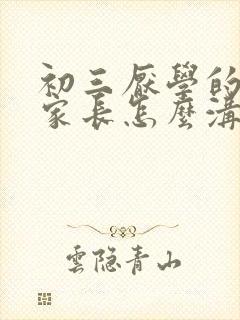 初三厭學的
家長怎麼溝
雲隐青山